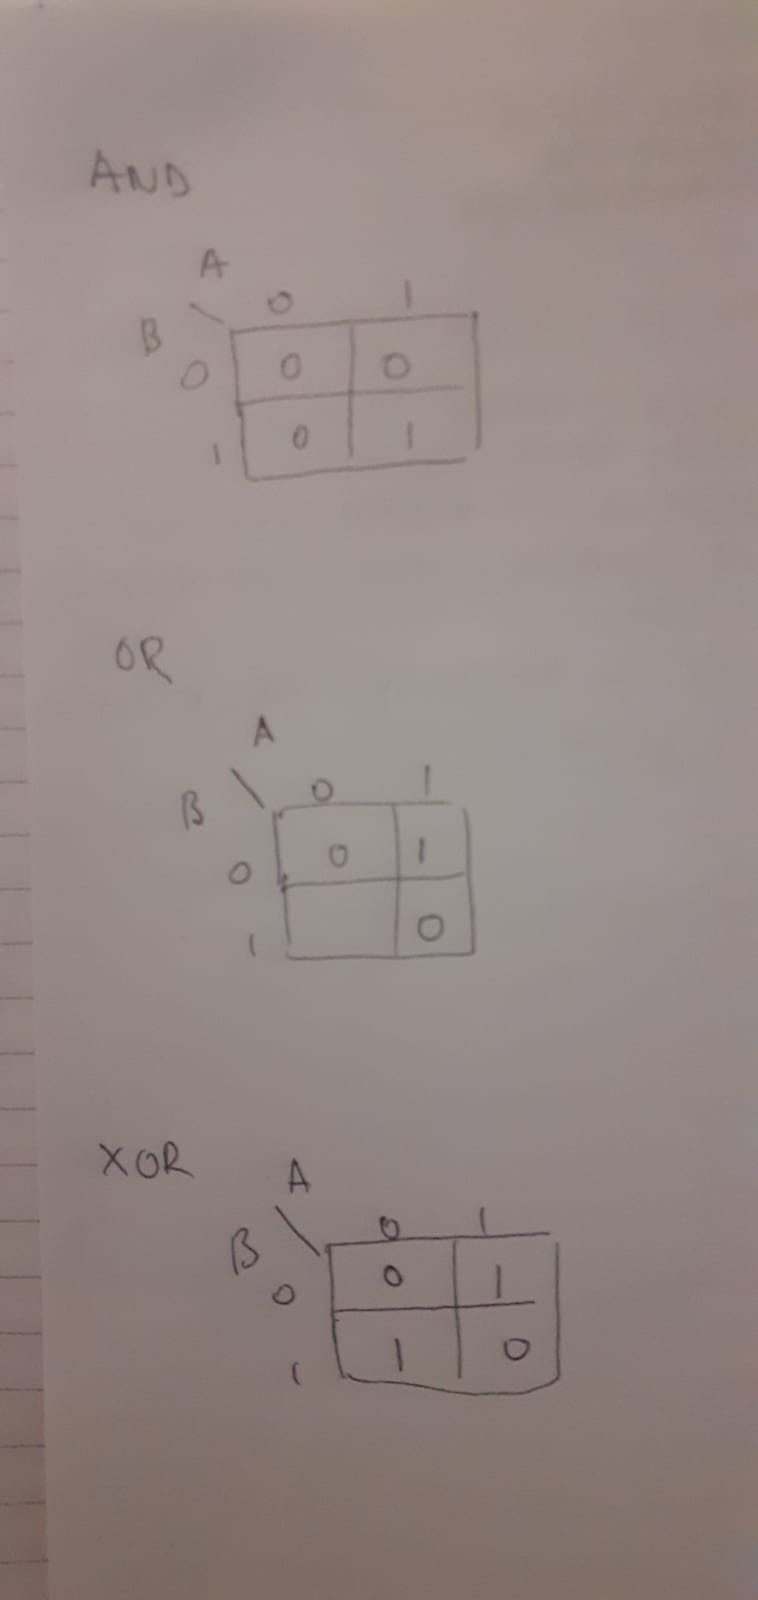 AND
A
B 0 1
0 0 0
1 0 1
OR
A
B 0 1
0 0 1
1 0
XOR
A
B 0 1
0 0 1
1 1 0